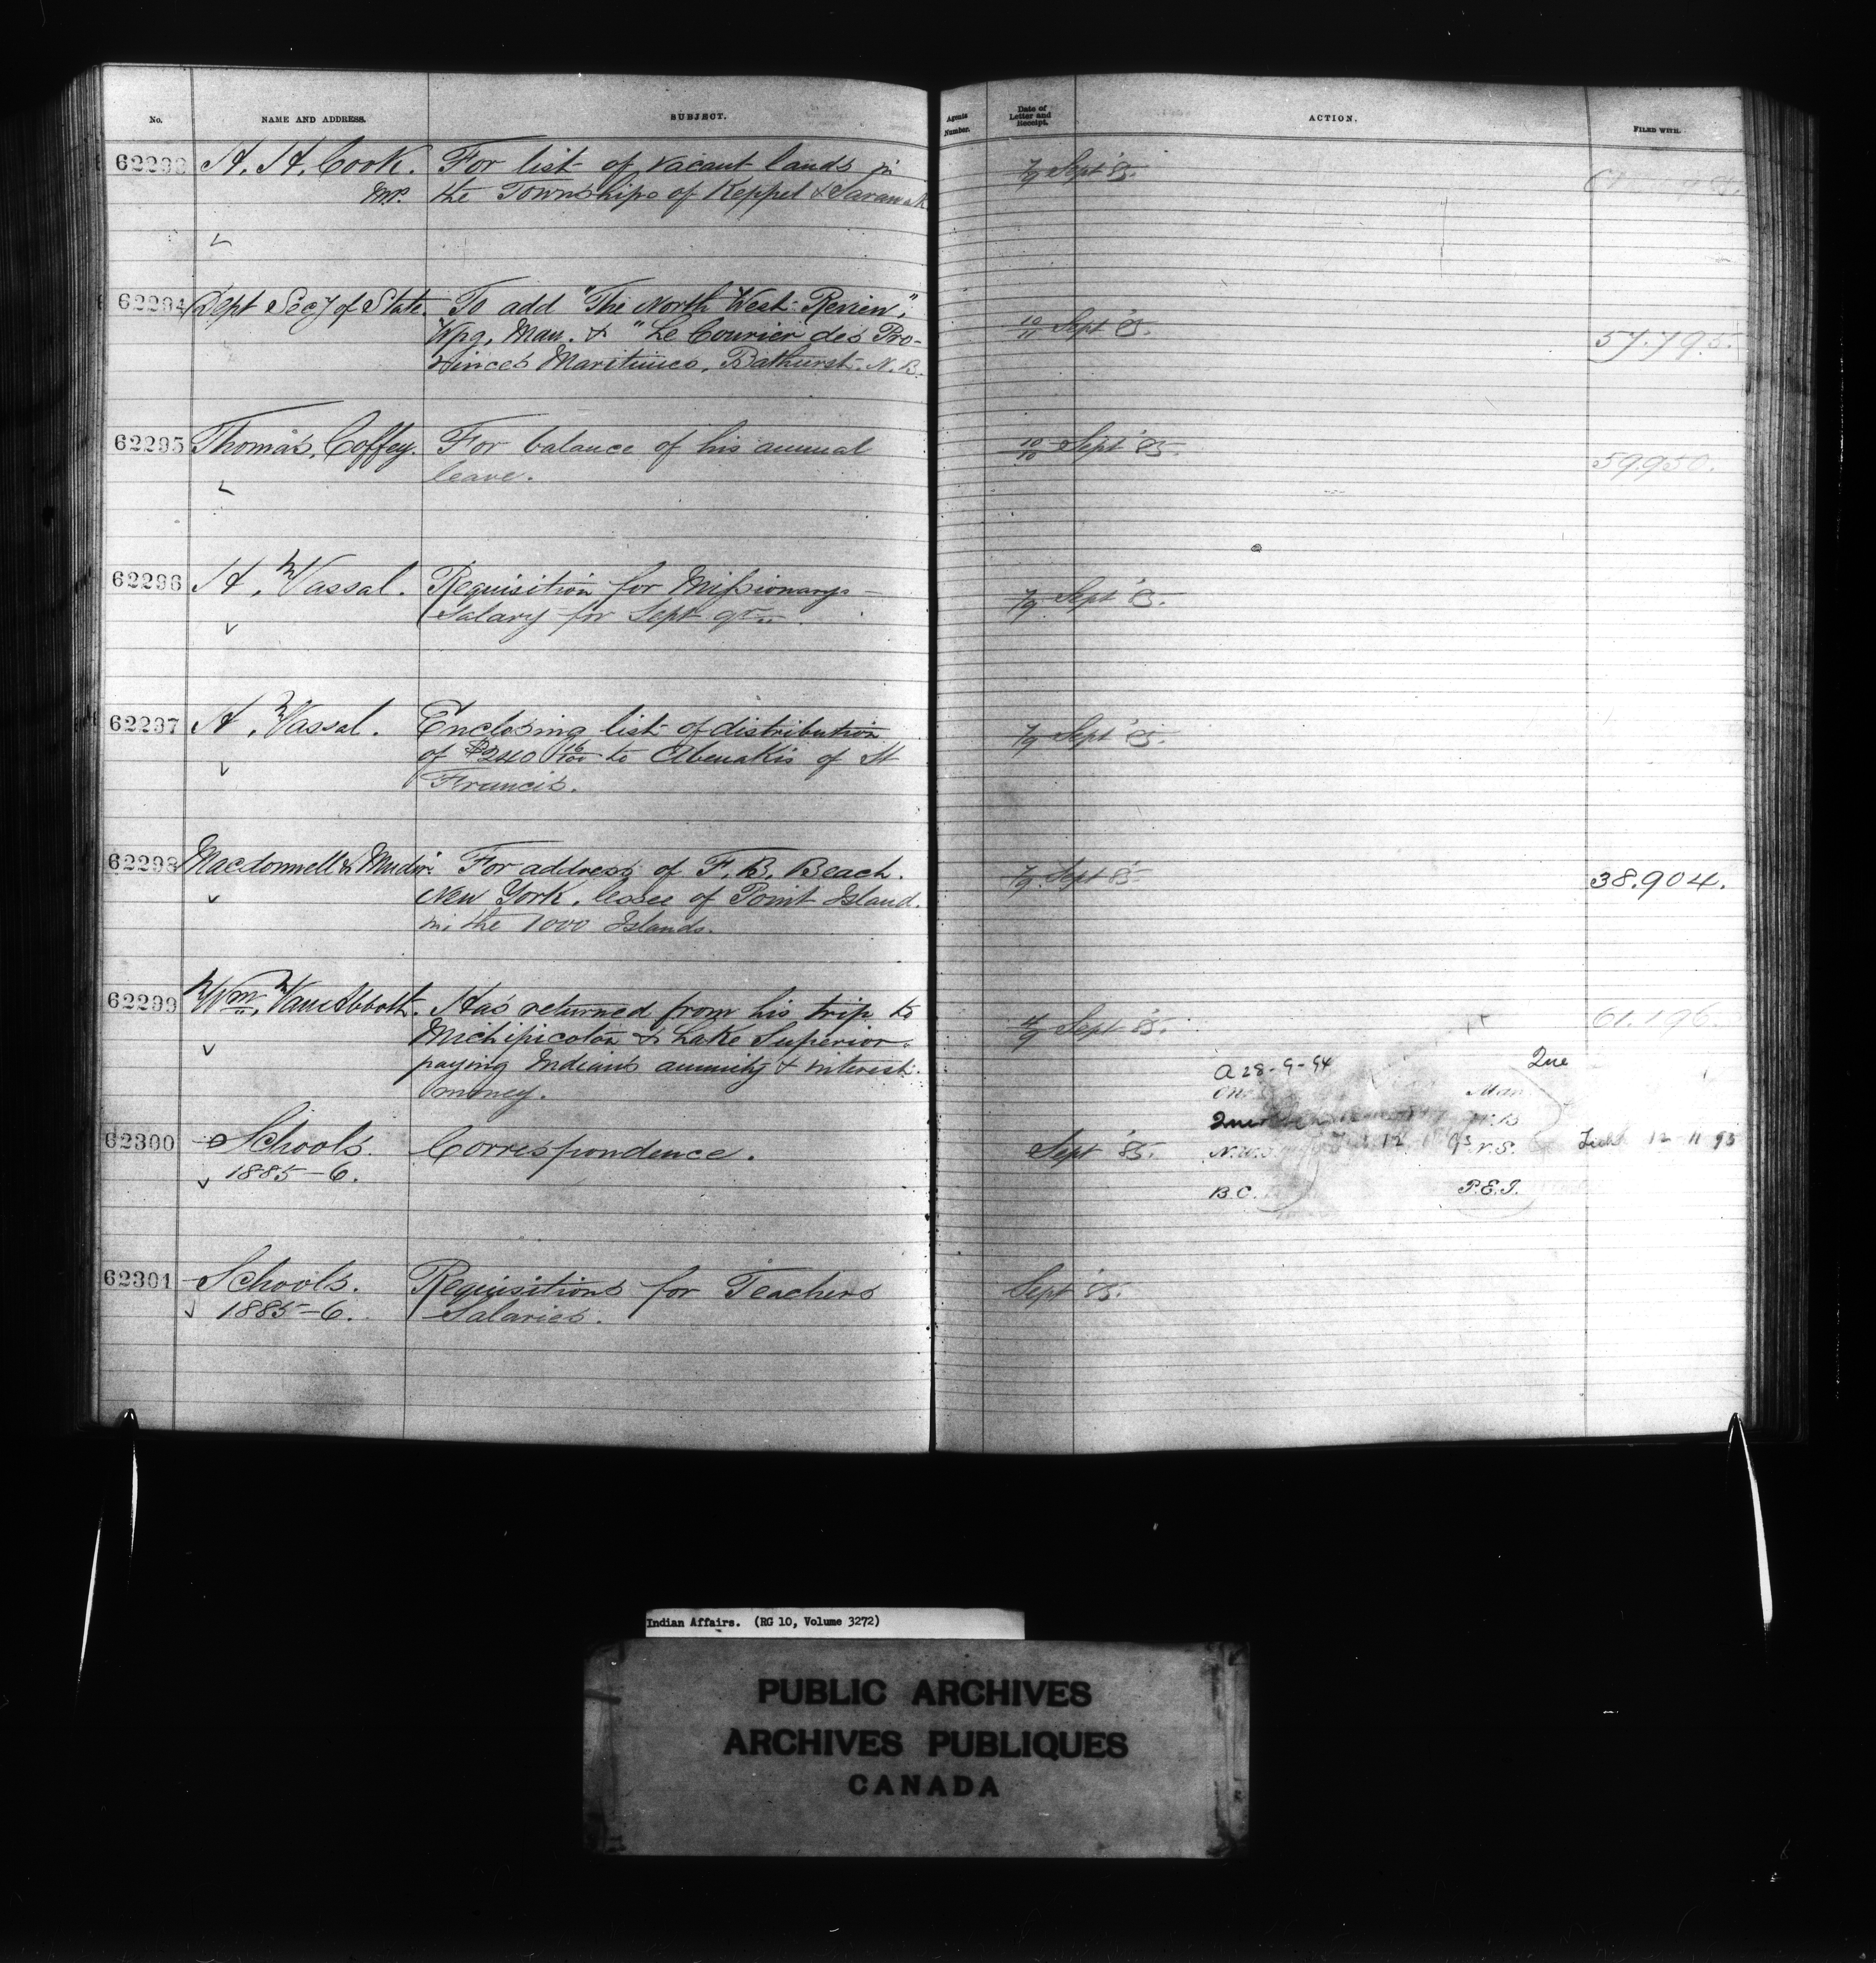 No. NAME AND ADDRESS. SUBJECT. Agents Number. Date of Letter and Receipt. ACTION. FILED WITH.
62293 H. H. Cook. For list of vacant lands in 7/9 Sept '85.
M.P. the Townships of Keppel & Sarawak
62294 Dept Secy of State. To add "The North West Review", 10/11 Sept '85. 57.795.
Wpg, Man. & "Le Courier des Pro-
vinces Maritimes, Bathurst. N.B.
62295 Thomas. Coffey. For balance of his annual 10/10 Sept '85. 59950.
leave.
62296 H. Vassal. Requisition for Missionarys 7/9 Sept '85.
Salary for Sept qr.
62297 H. Vassal. Enclosing list of distribution 7/9 Sept '85.
of $240 16/100 to Abenakis of St
Francis.
62298 Macdonnell & Mudie. For address of F. B. Beach. 7/9 Sept 85 38.904.
New York, lessee of Point Island.
in the 1000 Islands.
62299 Wm. Van Abbott. Has returned from his trip to 4/9 Sept '85. 61.196.
Michipicoton & Lake Superior
paying Indians annuity & interest
money.
A 28-9-94 Que
Ont Man
Que N.B
62300 Schools. Correspondence. Sept '85. N.W. 12 N.S. 12 11 95
1885-6.
B.C. P.E.I.
62301 Schools. Requisitions for Teachers Sept '85.
1885-6. Salaries.
Indian Affairs. (RG 10, Volume 3272)
PUBLIC ARCHIVES
ARCHIVES PUBLIQUES
CANADA